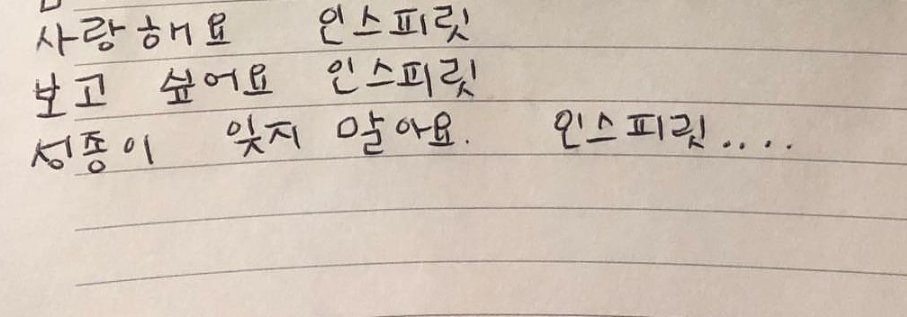 사랑해요 인스피릿
보고 싶어요 인스피릿
성종이 잊지 말아요. 인스피릿....